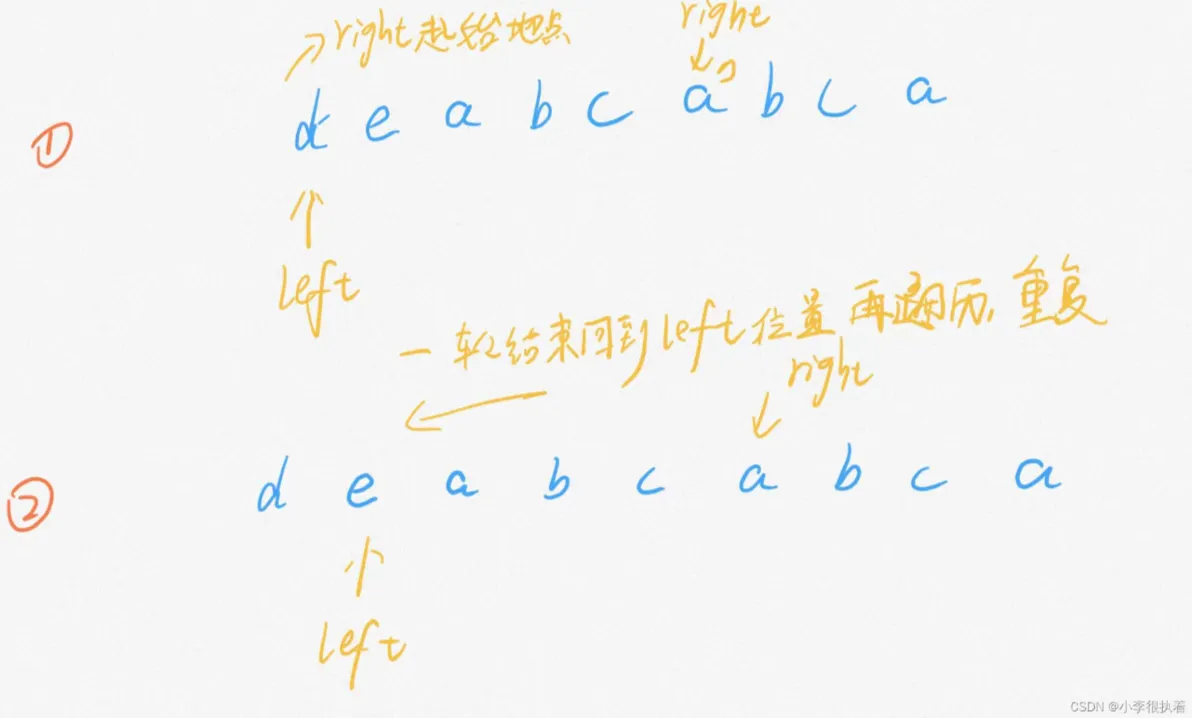 right起始地点 right
① d e a b c a b c a
left
一轮结束回到left位置再遍历,重复
right
② d e a b c a b c a
left
CSDN @小李很执着